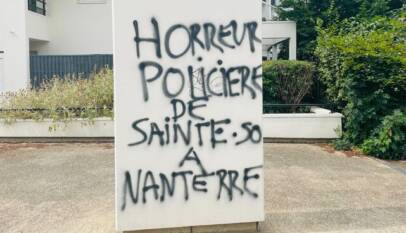 HORREUR
POLICIERE
DE
SAINTE-SO
A
NANTERRE